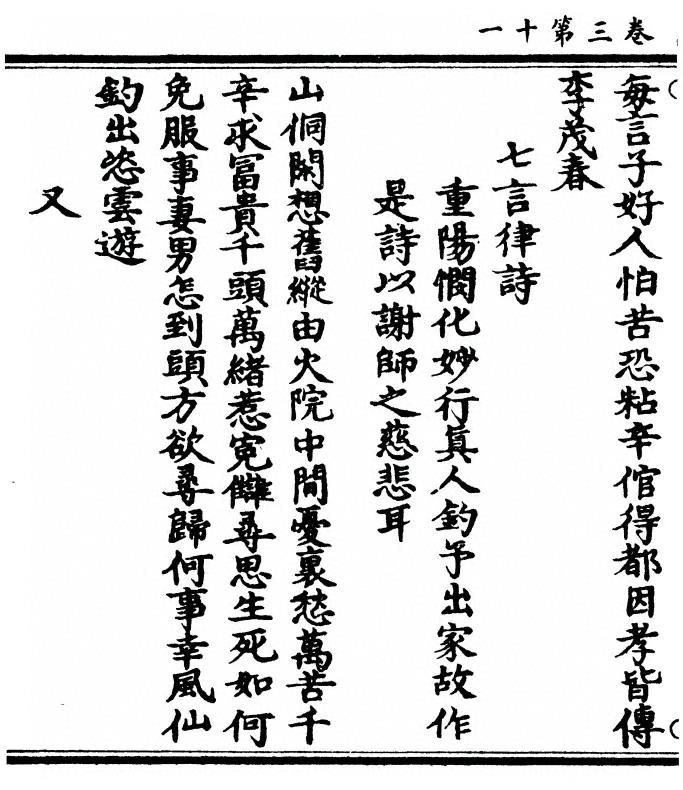 卷三第十一
每言子好人怕苦恐粘辛倌得都因孝皆傳
李茂春
七言律詩
重陽憫化妙行真人釣予出家故作
是詩以謝師之慈悲耳
山侗閑想舊縱由火院中間憂裏愁萬苦千
辛求冨貴千頭萬緒惹寃讎尋思生死如何
免服事妻男怎到頭方欲尋歸何事幸風仙
釣出恣雲遊
又